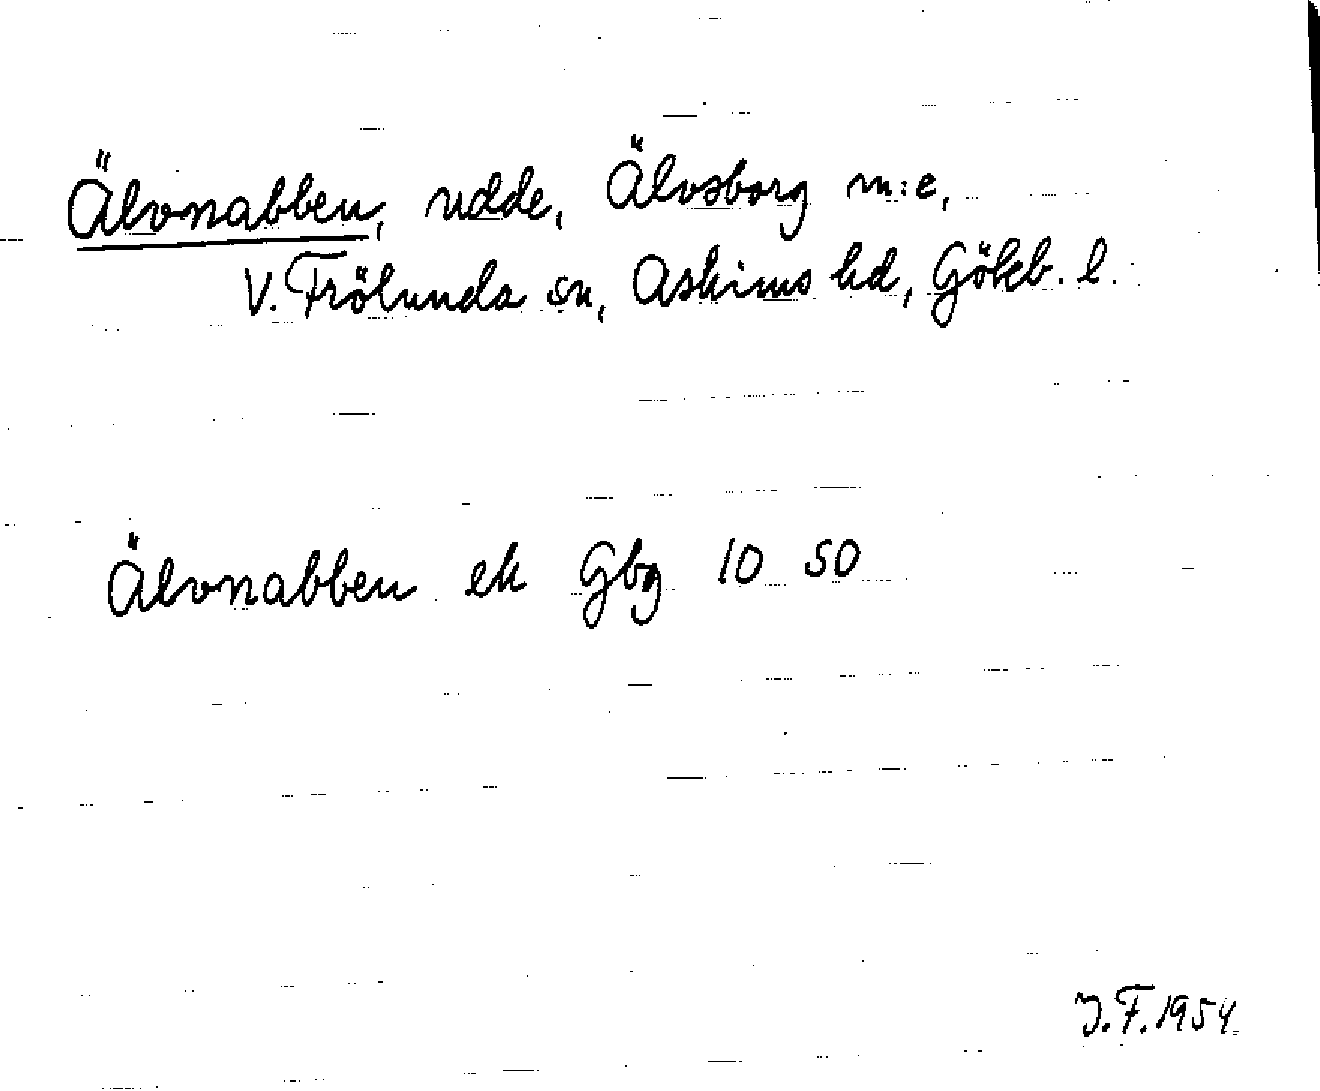 Älvnabben, udde, Älvsborg m:e,
V. Frölunda sn, Askims hd, Göteb. l.
Älvnabben ek Gbg 10 50
J.F. 1954